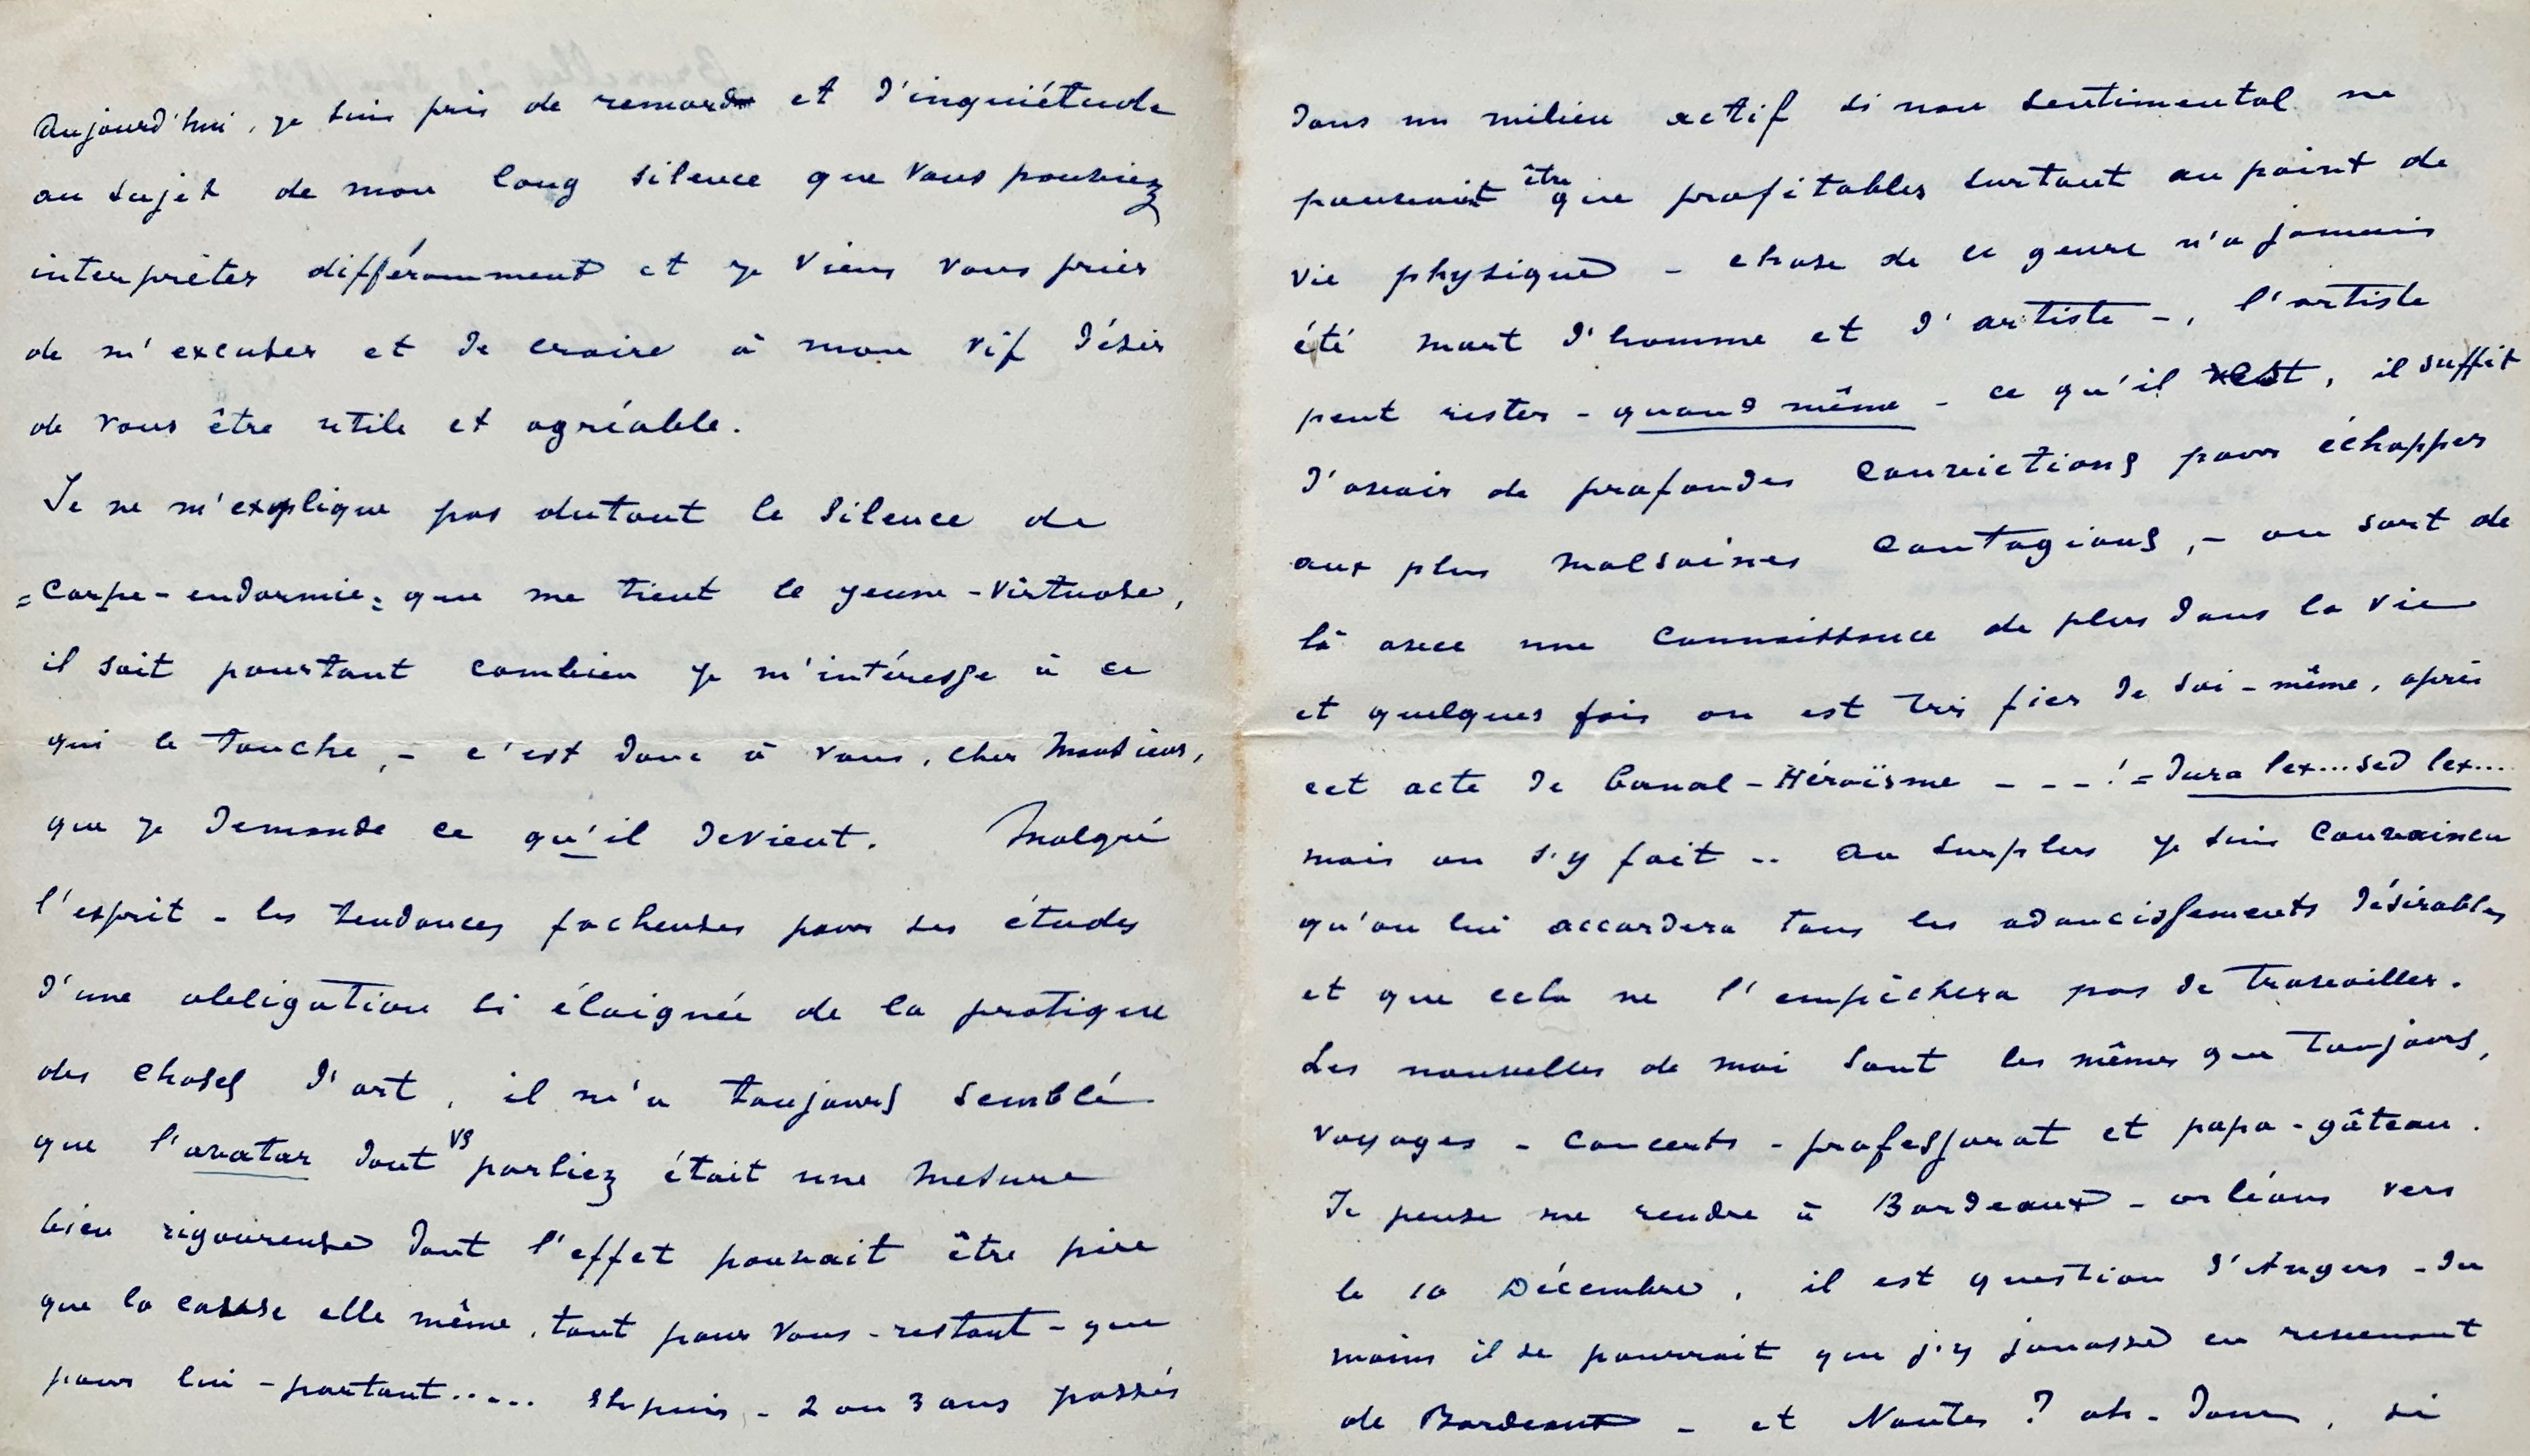 Aujourd'hui, je suis pris de remords et d'inquiétude
au sujet de mon long silence que vous pouviez
interprêter différamment et je viens vous prier
de m'excuser et de croire à mon vif désir
de vous être utile et agréable.
Je ne m'explique pas dutout le silence de
=carpe-endormie= que me tient le jeune-virtuose,
il sait pourtant combien je m'intéresse à ce
qui le touche, - c'est donc à vous, cher Monsieur,
que je demande ce qu'il devient. Malgré
l'esprit - les tendances facheuses pour ses études
d'une obligation si éloignée de la pratique
des choses d'art, il m'a toujours semblé
que l'avatar dont vs parliez était une mesure
bien rigoureuse dont l'effet pouvait être pire
que la cause elle même, tant pour vous - restant - que
pour lui - partant..... Et puis, - 2 ou 3 ans passés
dans un milieu actif si non sentimental ne
pouvait être que profitables surtout au point de
vie physique - chose de ce genre n'a jamais
été mort d'homme et d'artiste -, l'artiste
peut rester - quand même - ce qu'il est, il suffit
d'avoir de profondes convictions pour échapper
aux plus malsaines contagions, - on sort de
là avec une connaissance de plus dans la vie
et quelques fois on est très fier de soi-même, après
cet acte de banal-Héroïsme - - - ! = dura lex... sed lex....
mais on s'y fait .. au surplus je suis convaincu
qu'on lui accordera tous les adoucissements désirables
et que cela ne l'empêchera pas de travailler.
Les nouvelles de moi sont les mêmes que toujours,
voyages - concerts - professorat et papa-gâteau.
Je pense me rendre à Bordeaux - orléans vers
le 10 Décembre, il est question d'Angers - du
moins il se pourrait que j'y jouasse en revenant
de Bordeaux - et Nantes ? ah - dame, si